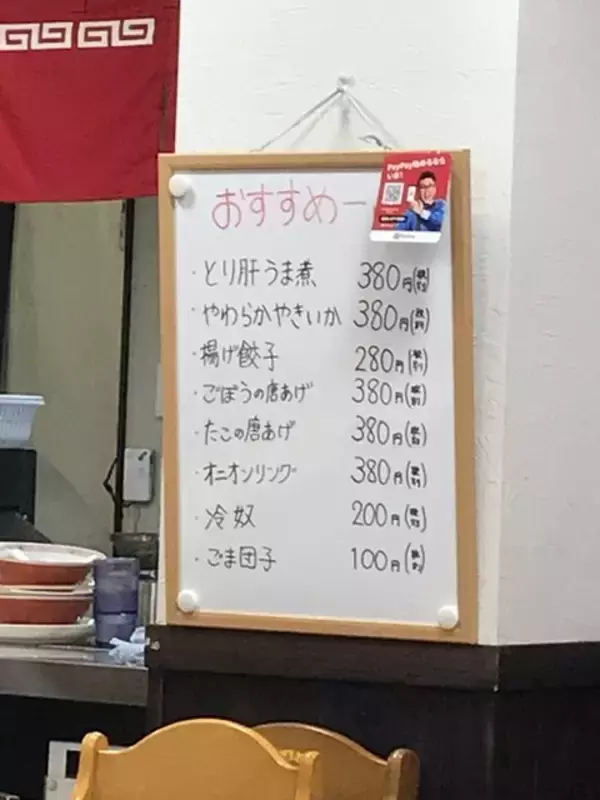 おすすめー
・とり肝うま煮 380円(税別)
・やわらかやきいか 380円(税別)
・揚げ餃子 280円(税別)
・ごぼうの唐あげ 380円(税別)
・たこの唐あげ 380円(税別)
・オニオンリング 380円(税別)
・冷奴 200円(税別)
・ごま団子 100円(税別)
PayPay始めるなら
いま!
PayPay